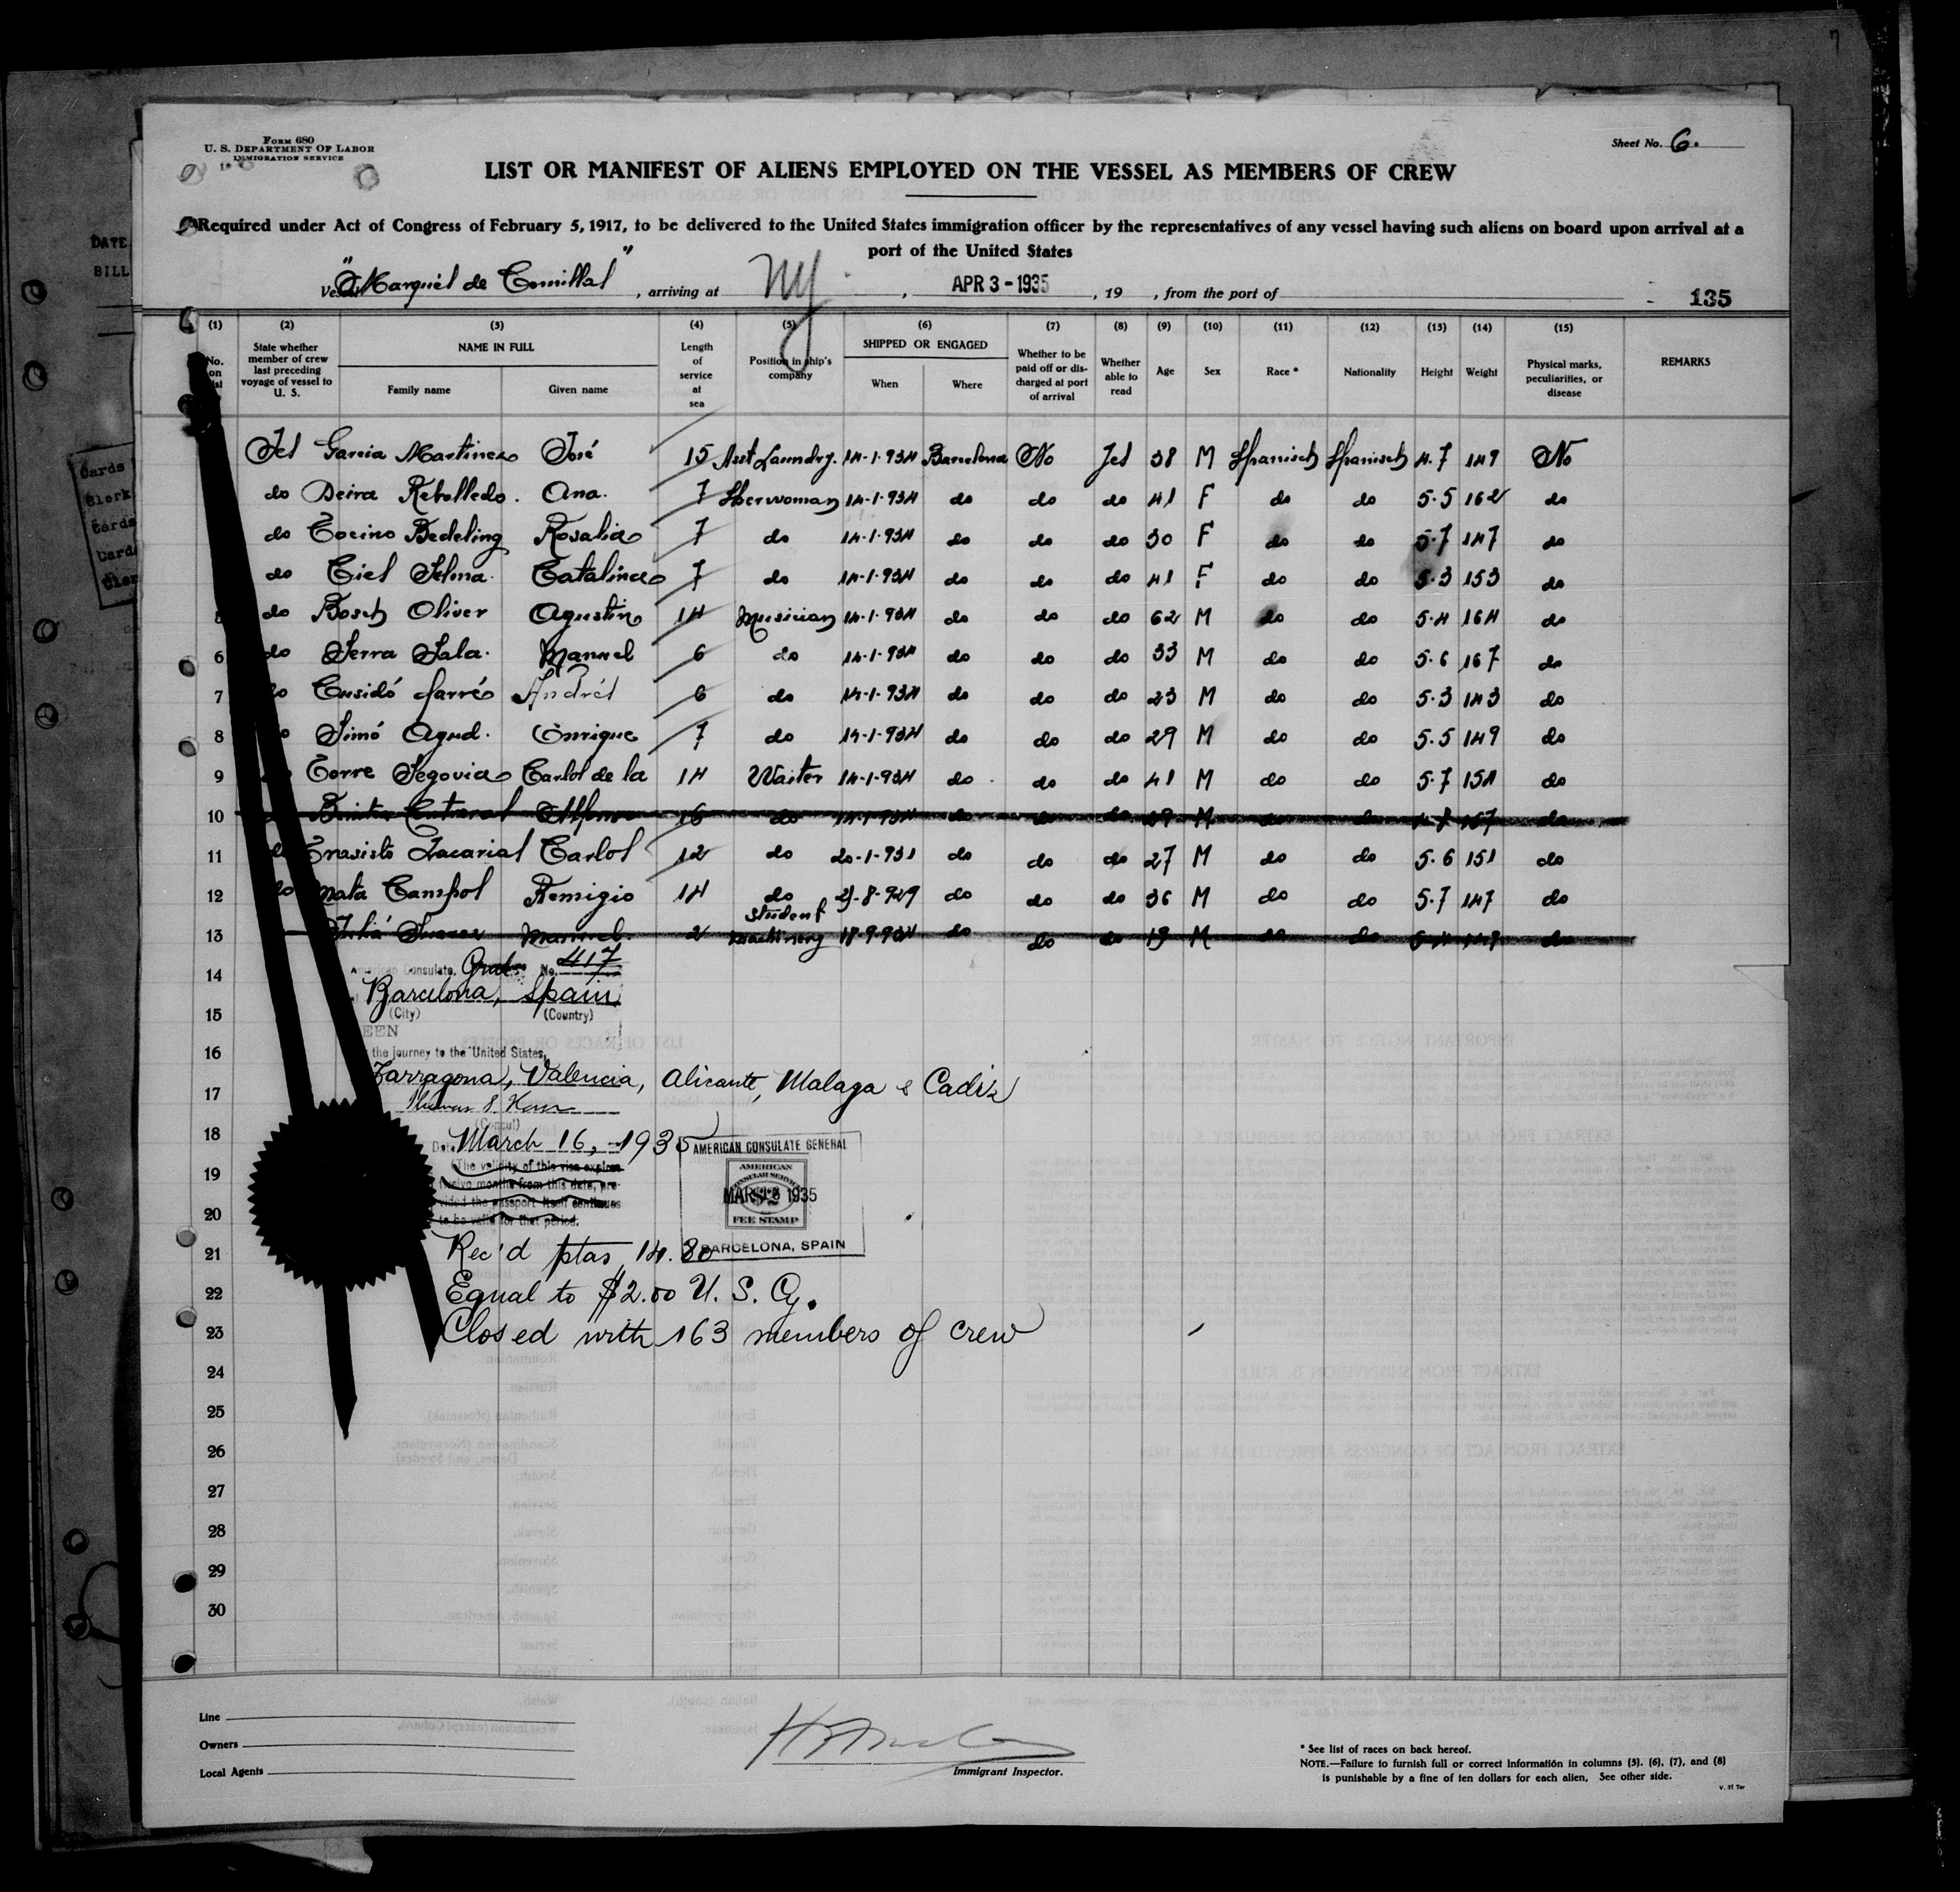 Form 680
U. S. Department Of Labor
IMMIGRATION SERVICE
Sheet No. 6.
LIST OR MANIFEST OF ALIENS EMPLOYED ON THE VESSEL AS MEMBERS OF CREW
Required under Act of Congress of February 5, 1917, to be delivered to the United States immigration officer by the representatives of any vessel having such aliens on board upon arrival at a
port of the United States
Vessel "Marqués de Comillas", arriving at NY, APR 3 - 1935, 19 , from the port of
135
(1) (2) (3) (4) (5) (6) (7) (8) (9) (10) (11) (12) (13) (14) (15)
No. on list
State whether member of crew last preceding voyage of vessel to U. S.
NAME IN FULL
Family name Given name
Length of service at sea
Position in ship's company
SHIPPED OR ENGAGED
When Where
Whether to be paid off or discharged at port of arrival
Whether able to read
Age Sex Race * Nationality Height Weight
Physical marks, peculiarities, or disease
REMARKS
Yes Garcia Martinez José 15 Asst Laundry. 14-1-934 Barcelona No Yes 38 M Spanisch Spanisch 4.7 149 No
do Deira Rebolledo. Ana. 7 14-1-934 do do do 41 F do do 5.5 162 do
do Rosalia 7 do 14-1-934 do do do 30 F do do 5.7 147 do
do Catalina 7 do 14-1-934 do do do 41 F do do 5.3 153 do
5 do Bosch Oliver Agustin 14 Musician 14-1-934 do do do 62 M do do 5.4 164 do
6 do Serra Sala. Manuel 6 do 14-1-934 do do do 33 M do do 5.6 167 do
7 do Cusidó Farré Andrés 6 do 14-1-934 do do do 23 M do do 5.3 143 do
8 do Simó Agud. Enrique 7 do 14-1-934 do do do 29 M do do 5.5 149 do
9 Torre Segovia Carlos de la 14 Waiter 14-1-934 do do do 41 M do do 5.7 154 do
10 Alfonso 16 do 14-1-934 do do do M do do 157 do
11 do Zacarias Carlos 12 do 20-1-931 do do do 27 M do do 5.6 151 do
12 do Mata Campos Remigio 14 do 21-8-929 do do do 36 M do do 5.7 147 do
13 Manuel. 2 Student Machinery 18-9-934 do do do 19 M do do do
American Consulate. Gral. No. 417
14
Barcelona, Spain
(City) (Country)
15
EEN
16
the journey to the United States,
Tarragona, Valencia, Alicante, Malaga & Cadiz
17
(Consul)
18
Date March 16, 1935
AMERICAN CONSULATE GENERAL
19
(The validity of this visa expires
twelve months from this date, pro-
vided the passport itself continues
to be valid for that period.
AMERICAN
CONSULAR SERVICE
$2
MAR 16 1935
FEE STAMP
BARCELONA, SPAIN
20
21
Rec'd ptas 14.80
22
Equal to $2.00 U. S. Cy.
23
Closed with 163 members of crew
24
25
26
27
28
29
30
Line
Owners
Local Agents
Immigrant Inspector.
* See list of races on back hereof.
NOTE.—Failure to furnish full or correct information in columns (3), (6), (7), and (8)
is punishable by a fine of ten dollars for each alien. See other side.
DATE
BILL
Cards
Clerk
Cards
Card
Cler